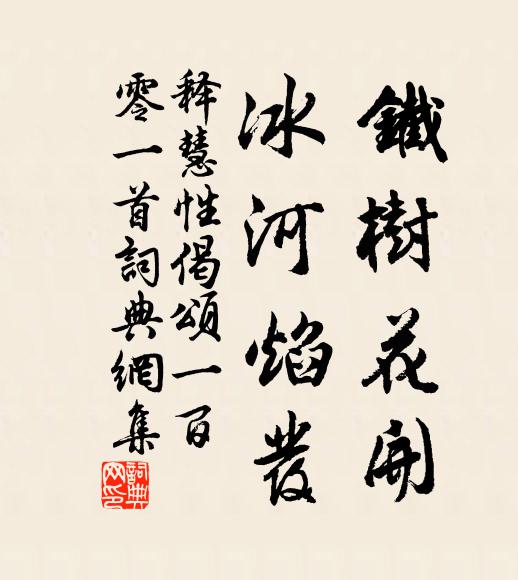 鐵樹花開
冰河焰發
释慧性偈頌一百
零一首詞典網集
詞典網印